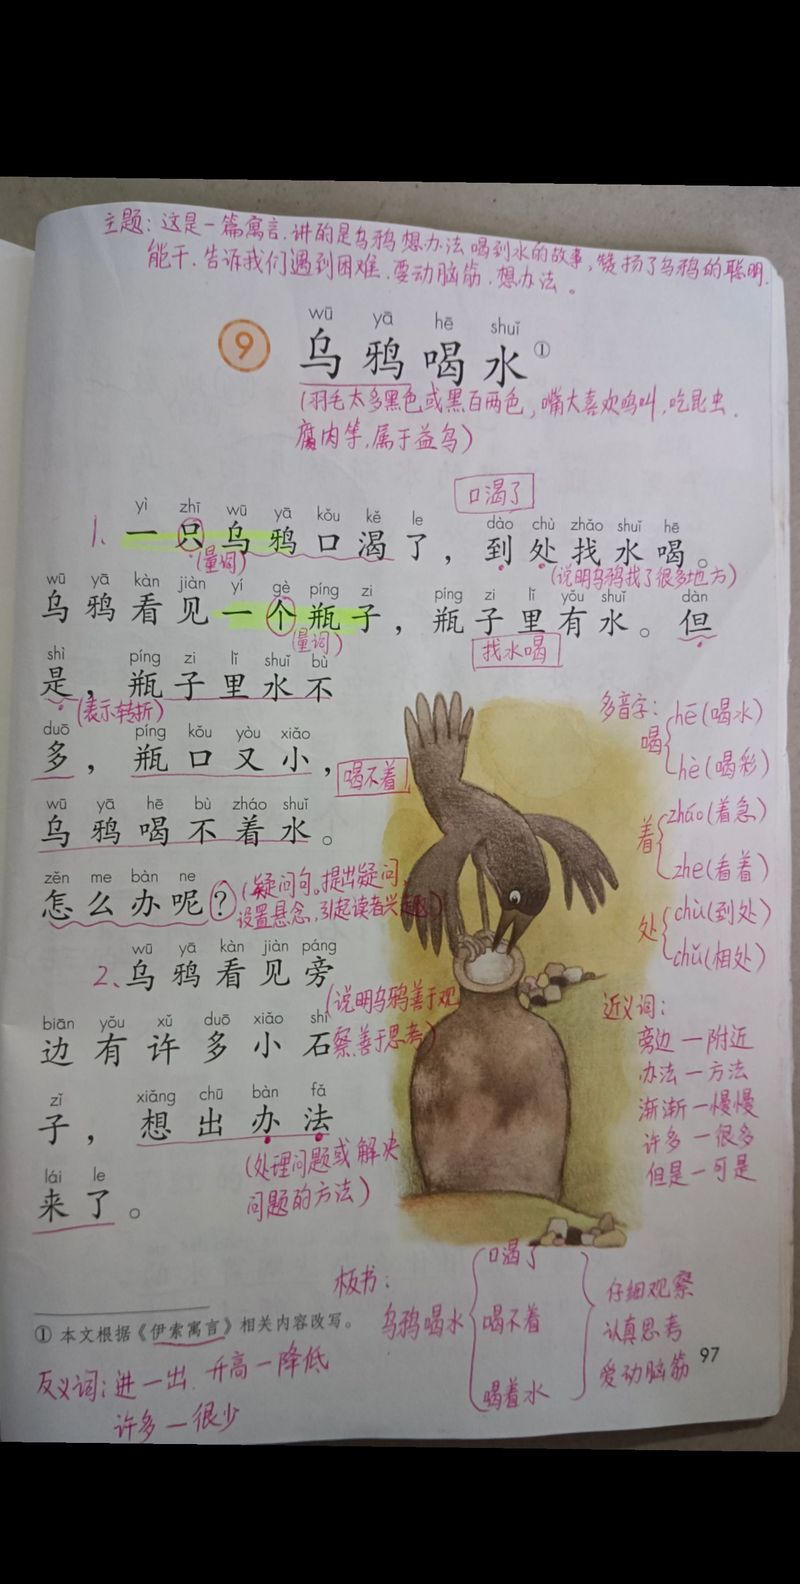 主题：这是一篇寓言.讲的是乌鸦想办法喝到水的故事，赞扬了乌鸦的聪明.
能干.告诉我们遇到困难.要动脑筋.想办法。
wū yā hē shuǐ
9 乌鸦喝水①
(羽毛太多黑色或黑白两色，嘴大喜欢鸣叫.吃昆虫.
腐肉等.属于益鸟)
口渴了
yì zhī wū yā kǒu kě le dào chù zhǎo shuǐ hē
1、一只乌鸦口渴了，到处找水喝。
(量词)
(说明乌鸦找了很多地方)
wū yā kàn jiàn yí gè píng zi píng zi lǐ yǒu shuǐ dàn
乌鸦看见一个瓶子，瓶子里有水。但
(量词)
找水喝
shì píng zi lǐ shuǐ bù
是，瓶子里水不
(表示转折)
duō píng kǒu yòu xiǎo
多，瓶口又小，
喝不着
wū yā hē bù zháo shuǐ
乌鸦喝不着水。
zěn me bàn ne
怎么办呢？
(疑问句。提出疑问，
设置悬念，引起读者兴趣)
wū yā kàn jiàn páng
2、乌鸦看见旁
(说明乌鸦善于观
biān yǒu xǔ duō xiǎo shí
边有许多小石
察善于思考)
zǐ xiǎng chū bàn fǎ
子，想出办法
(处理问题或解决
问题的方法)
lái le
来了。
多音字：
喝
hē(喝水)
hè(喝彩)
着
zháo(着急)
zhe(看着)
处
chù(到处)
chǔ(相处)
近义词：
旁边—附近
办法—方法
渐渐—慢慢
许多—很多
但是—可是
板书：
乌鸦喝水
口渴了
喝不着
喝着水
仔细观察
认真思考
爱动脑筋
① 本文根据《伊索寓言》相关内容改写。
97
反义词：进—出 升高—降低
许多—很少